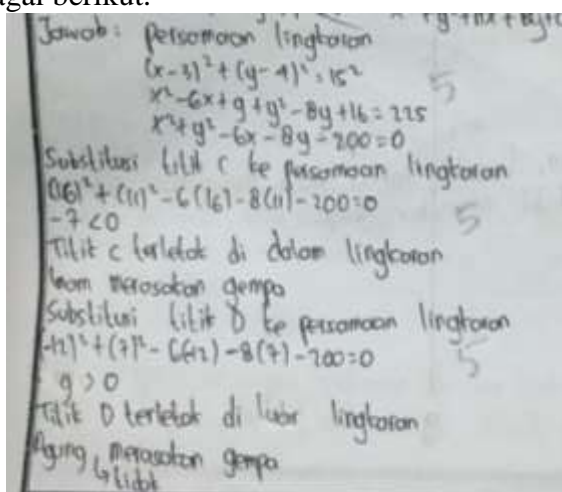 agai berikut.
Jawab: persamaan lingkaran
(x-3)² + (y-4)² = 15²
x²-6x+9+y²-8y+16=225
5
x²+y²-6x-8y-200=0
Substitusi titik C ke persamaan lingkaran
(16)² + (11)² - 6(16) - 8(11) - 200=0
-7<0
5
Titik C terletak di dalam lingkaran
merasakan gempa
Substitusi titik D ke persamaan lingkaran
(-12)² + (7)² - 6(-12) - 8(7) - 200=0
5
9 > 0
Titik D terletak di luar lingkaran
Agung merasakan gempa
tidak